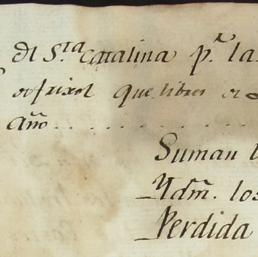 de S.ta Catalina p.r la
que libros
año
Suman
Ydm. los
Perdida